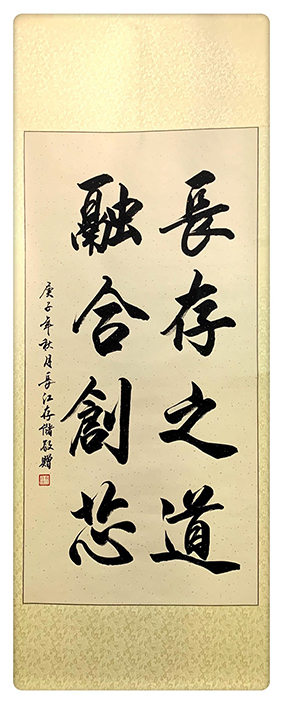 長存之道
融合創芯
庚子年秋月長江存儲敬贈